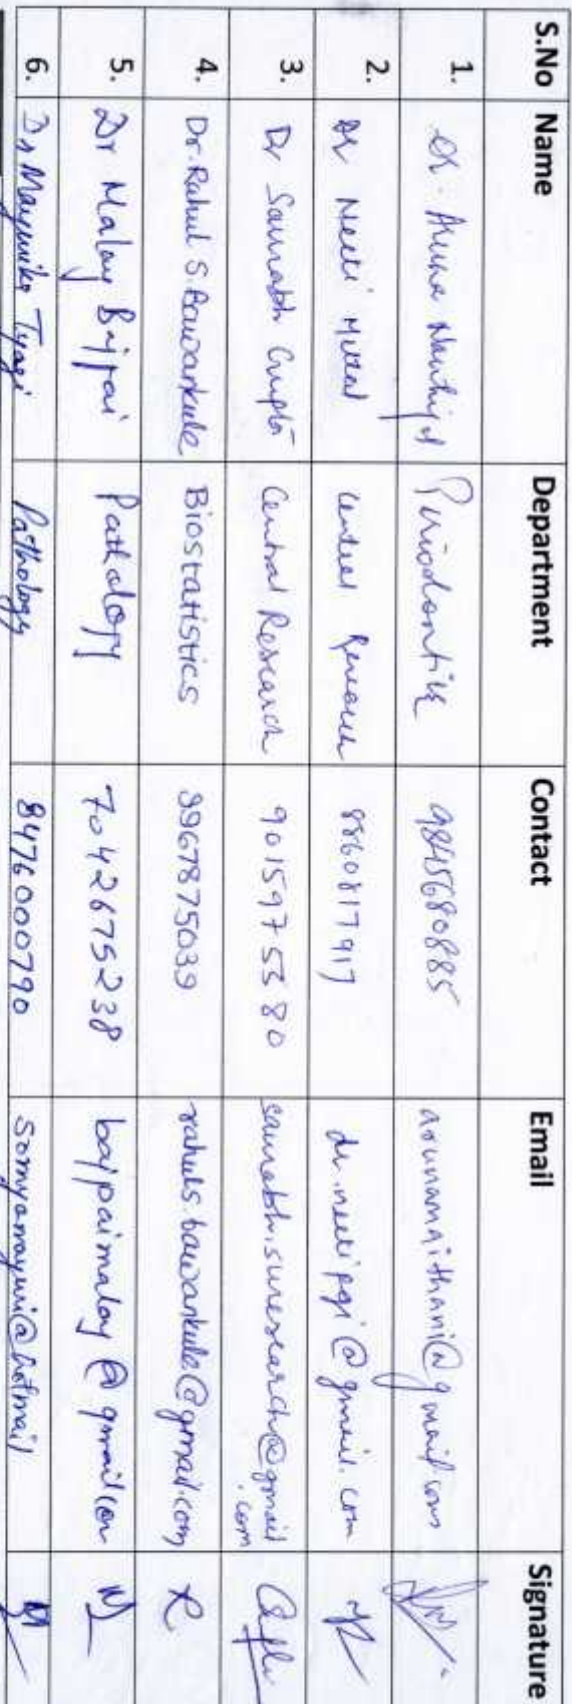 S.No Name Department Contact Email Signature
1. Dr. Aruna Periodontics 9845680885 arunamaithani@gmail.com
2. Dr Neeti Mittal Central Research 8860817917 dr.neetipgi@gmail.com
3. Dr Saurabh Gupta Central Research 9015975580 saurabh.suresearch@gmail.com
4. Dr. Rahul S. Bawankule Biostatistics 9967875039 rahuls.bawankule@gmail.com
5. Dr Malay Bajpai Pathology 7042675238 bajpaimalay@gmail.com
6. Dr Mayurika Tyagi Pathology 8476000790 somyamayuri@hotmail